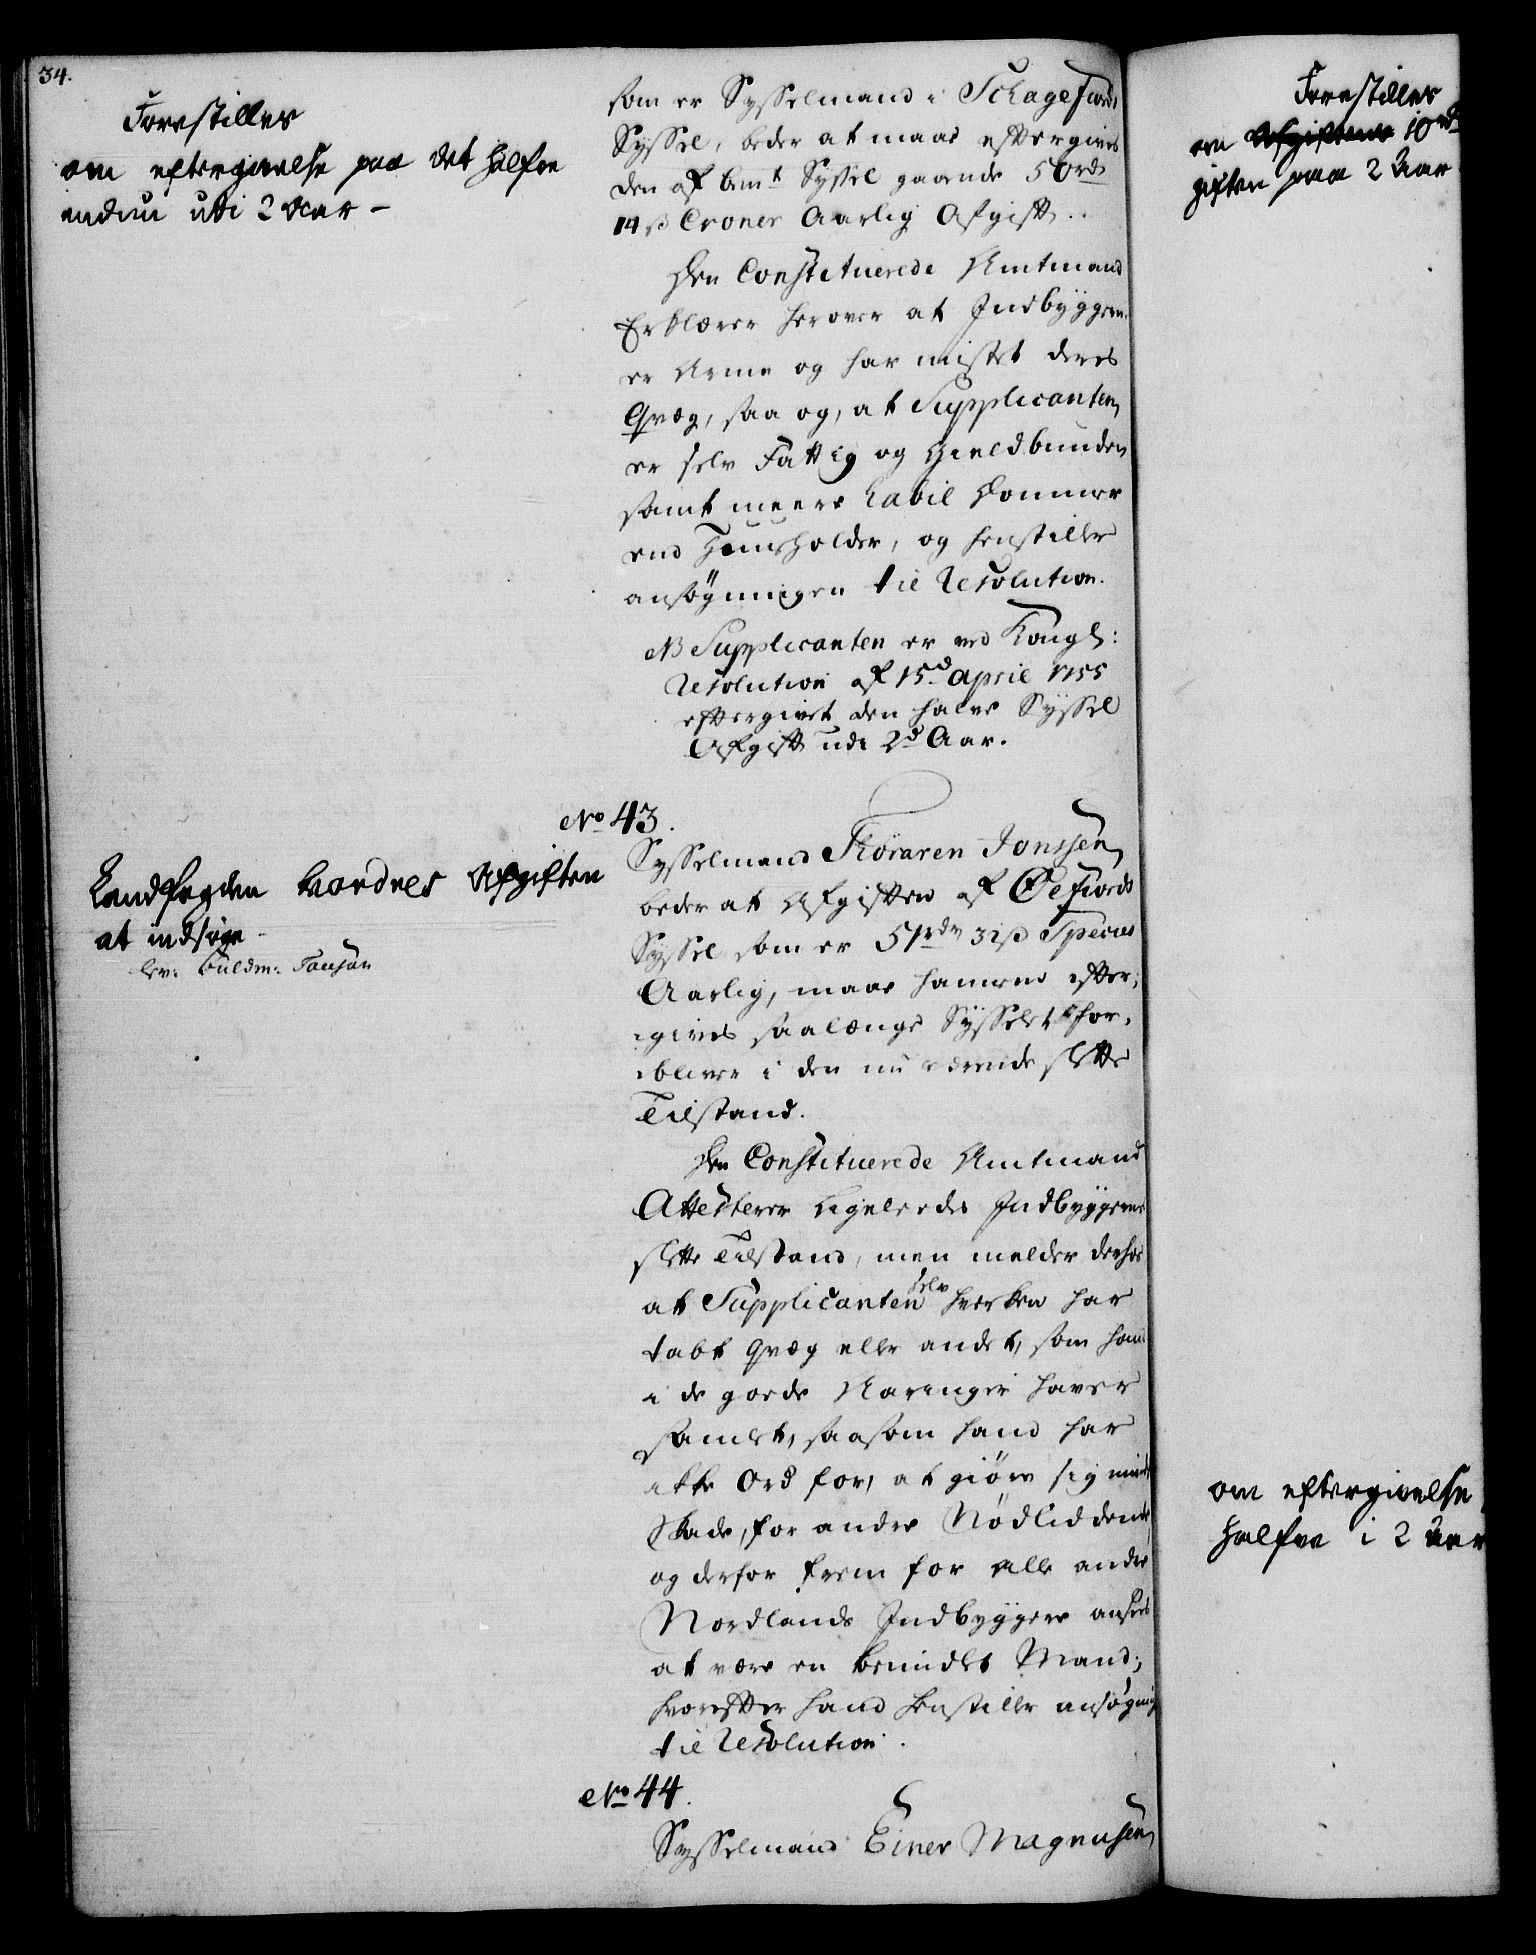 34.
Forestilles
om eftergivelse paa det halfve
endnu udi 2 Aar -
som er Sysselmand i Schagefiords
Syssel, beder at maae eftergives
den af bemt Syssel gaaende 50 rdr
14 ß Croner Aarlig Afgift.
Den Constituerede Amtmand
Erklærer herover at Indbyggerne
er Arme og har mistet deres
Qvæg, saa og, at Supplicanten
er selv Fattig og Gieldbunden
samt meere habil Dommer
end Huusholder, og henstiller
ansøgningen til Resolution.
NB Supplicanten er ved Kongl:
Resolution af 15d April 1755
eftergivet den halve Syssel
Afgift udi 2d Aar.
No 43.
Landfogden beordres Afgiften
at indsøge -
lev: Guldm:
Sysselmand Thoraren Jonssen
beder at Afgiften af Øefiords
Syssel som er 51 rdr 32 ß Species
Aarlig, maae hannem efter-
gives saalænge Sysselet for-
bliver i den nu værende slette
Tilstand.
Den Constituerede Amtmand
Attesterer ligeledes Indbyggernes
slette Tilstand, men melder derhos
at Supplicanten selv hverken har
tabt Qvæg eller andet, som hand
i de goede Aaringer haver
samlet, saasom hand har
ikke Ord for, at giøre sig mindste
Skade, for andre Nødliddende,
og derfor frem for alle andre
Nordlands Indbyggere ansees
at være en bemidlet Mand;
hvorefter hand henstiller ansøgning
til Resolution.
No 44.
Sysselmand Einer Magnusen
Forestilles
om Afgiftens 10 rd
giften paa 2 Aar
om eftergivelse
halfve i 2 Aar